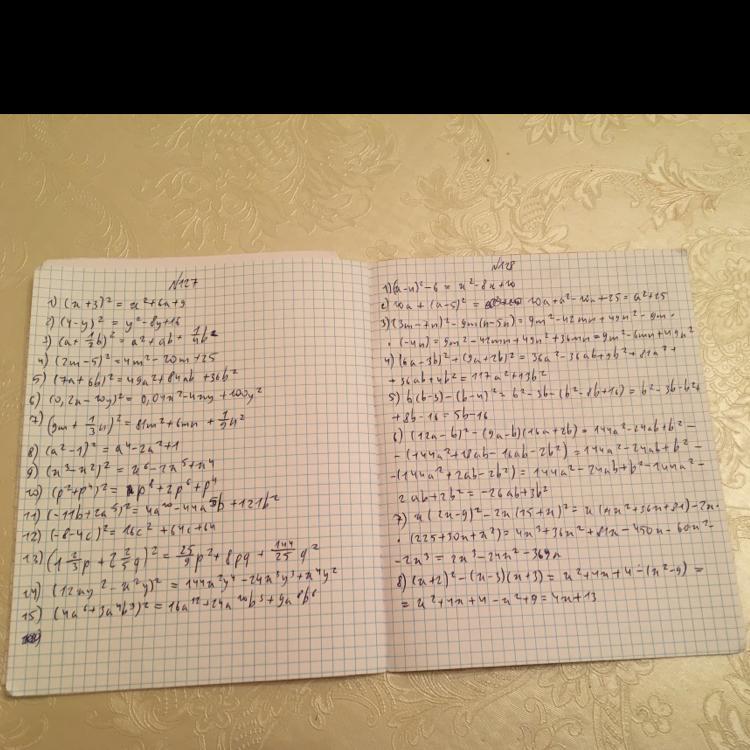 N127
1) (x+3)² = x²+6x+9
2) (4-y)² = y²-8y+16
3) (a+1/2b)² = a²+ab+1/4b²
4) (2m-5)² = 4m²-20m+25
5) (7a+6b)² = 49a²+84ab+36b²
6) (0,2x-10y)² = 0,04x²-4xy+100y²
7) (9m+1/3n)² = 81m²+6mn+1/9n²
8) (a²-1)² = a⁴-2a²+1
9) (x³-x²)² = x⁶-2x⁵+x⁴
10) (p²+p⁴)² = p⁸+2p⁶+p⁴
11) (-11b+2a⁵)² = 4a¹⁰-44a⁵b+121b²
12) (-8-4c)² = 16c²+64c+64
13) (1 2/3p+2 2/5q)² = 25/9p²+8pq+144/25q²
14) (12xy²-x²y)² = 144x²y⁴-24x³y³+x⁴y²
15) (4a⁶+3a⁴b³)² = 16a¹²+24a¹⁰b³+9a⁸b⁶
N128
1) (x-4)²-6 = x²-8x+10
2) 10a+(a-5)² = 10a+a²-10a+25 = a²+25
3) (3m-7n)²-9m(n-5n) = 9m²-42mn+49n²-9m·
·(-4n) = 9m²-42mn+49n²+36mn = 9m²-6mn+49n²
4) (6a-3b)²+(9a+2b)² = 36a²-36ab+9b²+81a²+
+36ab+4b² = 117a²+13b²
5) b(b-3)-(b-4)² = b²-3b-(b²-8b+16) = b²-3b-b²+
+8b-16 = 5b-16
6) (12a-b)²-(9a-b)(16a+2b) = 144a²-24ab+b²-
-(144a²+18ab-16ab-2b²) = 144a²-24ab+b²-
-(144a²+2ab-2b²) = 144a²-24ab+b²-144a²-
2ab+2b² = -26ab+3b²
7) x(2x-9)²-2x(15+x)² = x(4x²+36x+81)-2x·
·(225+30x+x²) = 4x³+36x²+81x-450x-60x²-
-2x³ = 2x³-24x²-369x
8) (x+2)²-(x-3)(x+3) = x²+4x+4-(x²-9) =
= x²+4x+4-x²+9 = 4x+13